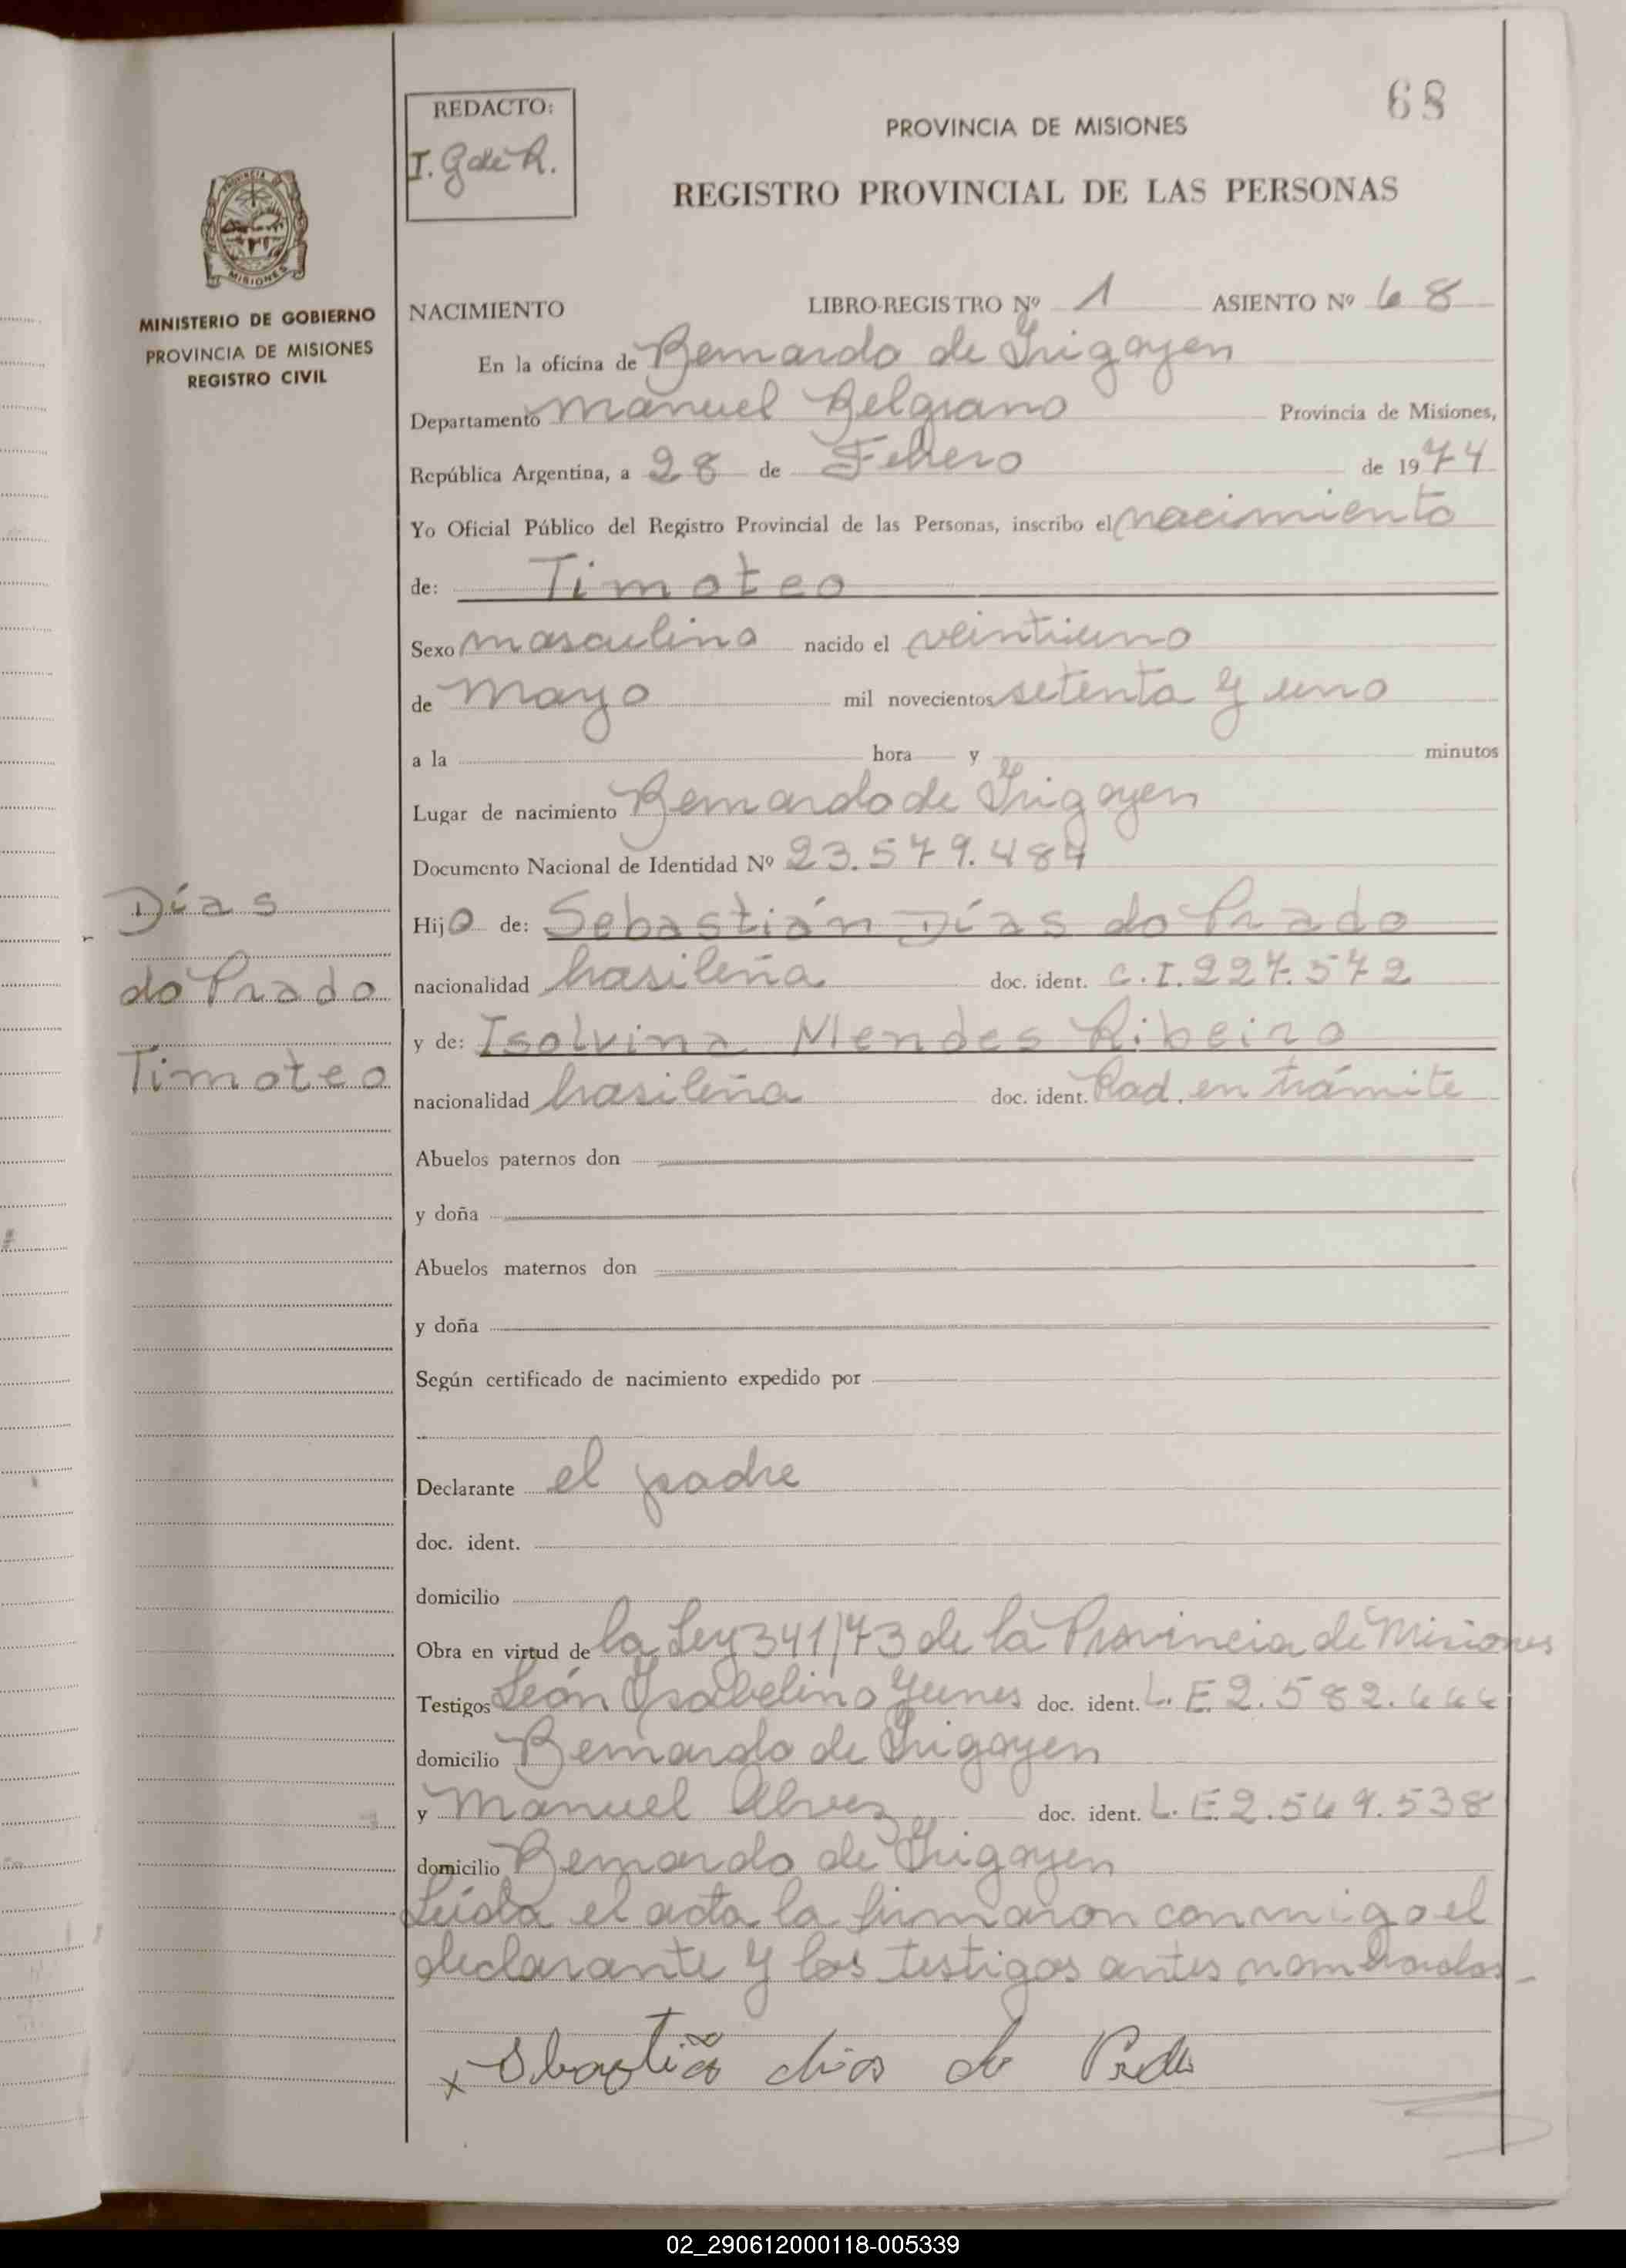 68
REDACTO:
I. G de R.
PROVINCIA DE MISIONES
REGISTRO PROVINCIAL DE LAS PERSONAS
PROVINCIA DE
MISIONES
MINISTERIO DE GOBIERNO
PROVINCIA DE MISIONES
REGISTRO CIVIL
NACIMIENTO LIBRO-REGISTRO Nº 1 ASIENTO Nº 68
En la oficina de Bernardo de Irigoyen
Departamento Manuel Belgrano Provincia de Misiones,
República Argentina, a 28 de Febrero de 1974
Yo Oficial Público del Registro Provincial de las Personas, inscribo el nacimiento
de: Timoteo
Sexo masculino nacido el veintiuno
de Mayo mil novecientos setenta y uno
a la hora y minutos
Lugar de nacimiento Bernardo de Irigoyen
Documento Nacional de Identidad Nº 23.579.487
Días
do Prado
Timoteo
Hijo de: Sebastián Días do Prado
nacionalidad brasileña doc. ident. C.I. 227.572
y de: Isolvina Mendes Ribeiro
nacionalidad brasileña doc. ident. Rad. en trámite
Abuelos paternos don
y doña
Abuelos maternos don
y doña
Según certificado de nacimiento expedido por
Declarante el padre
doc. ident.
domicilio
Obra en virtud de la Ley 341/73 de la Provincia de Misiones
Testigos León Ysabelino Yunes doc. ident. L.E. 2.582.666
domicilio Bernardo de Irigoyen
y Manuel Alvez doc. ident. L.E. 2.569.538
domicilio Bernardo de Irigoyen
Leída el acta la firmaron conmigo el
declarante y los testigos antes nombrados-
x Sbastião dias do Prado
02_290612000118-005339